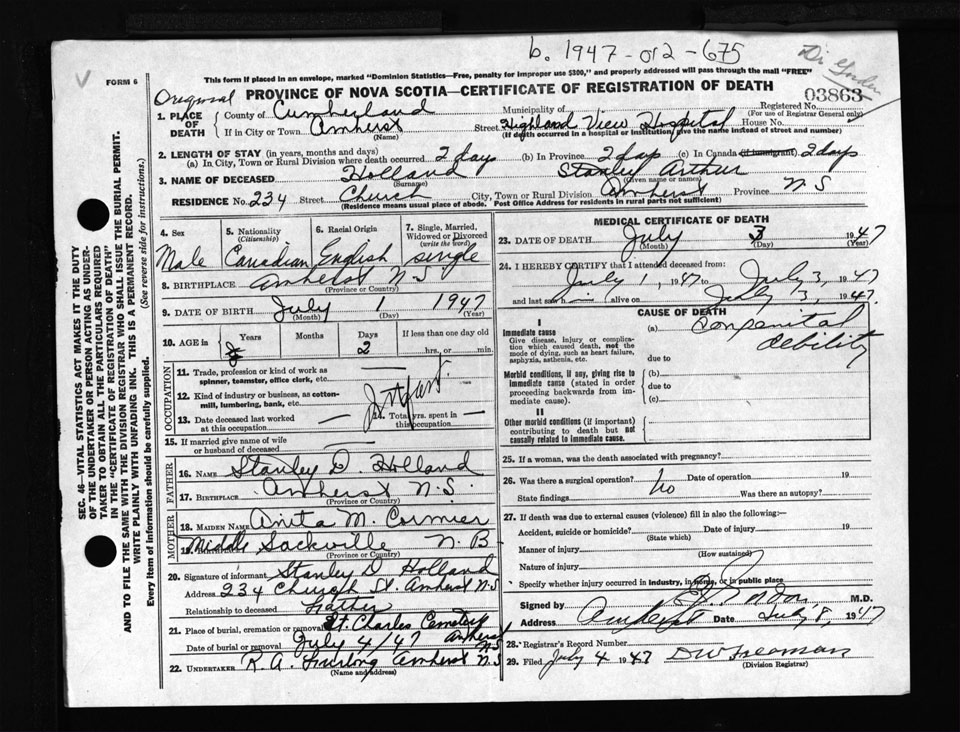 b. 1947-012-675
FORM 6
This form if placed in an envelope, marked "Dominion Statistics—Free, penalty for improper use $300," and properly addressed will pass through the mail "FREE"
Original
PROVINCE OF NOVA SCOTIA—CERTIFICATE OF REGISTRATION OF DEATH
03863
1. PLACE OF DEATH
County of Cumberland
Municipality of
Registered No.
(For use of Registrar General only)
If in City or Town Amherst (Name)
Street Highland View Hospital House No.
(If death occurred in a hospital or institution, give the name instead of street and number)
2. LENGTH OF STAY (in years, months and days)
(a) In City, Town or Rural Division where death occurred 2 days (b) In Province 2 days (c) In Canada (if immigrant) 2 days
3. NAME OF DECEASED Holland (Surname) Stanley Arthur (Given name or names)
RESIDENCE No. 234 Street Church City, Town or Rural Division Amherst Province N.S
(Residence means usual place of abode. Post Office Address for residents in rural parts not sufficient)
4. Sex Male
5. Nationality (Citizenship) Canadian
6. Racial Origin English
7. Single, Married, Widowed or Divorced (write the word) single
8. BIRTHPLACE Amherst N S (Province or Country)
9. DATE OF BIRTH July (Month) 1 (Day) 1947 (Year)
10. AGE in Years Months Days 2 If less than one day old hrs., or min.
OCCUPATION
11. Trade, profession or kind of work as spinner, teamster, office clerk, etc.
12. Kind of industry or business, as cotton-mill, lumbering, bank, etc.
13. Date deceased last worked at this occupation — 14. Total yrs. spent in this occupation —
15. If married give name of wife or husband of deceased
FATHER
16. NAME Stanley D. Holland
17. BIRTHPLACE Amherst N.S. (Province or Country)
MOTHER
18. MAIDEN NAME Anita M. Cormier
19. Middle Sackville N. B (Province or Country)
20. Signature of informant Stanley D Holland
Address 234 Church St. Amherst N.S
Relationship to deceased Father
21. Place of burial, cremation or removal St. Charles Cemetery Amherst NS
Date of burial or removal July 4/47
22. UNDERTAKER R. A. Furlong Amherst N S
(Name and address)
MEDICAL CERTIFICATE OF DEATH
23. DATE OF DEATH July (Month) 3 (Day) 1947 (Year)
24. I HEREBY CERTIFY that I attended deceased from
July 1, 1947 to July 3, 1947
and last saw him alive on July 3, 1947.
CAUSE OF DEATH
I
Immediate cause
Give disease, injury or complication which caused death, not the mode of dying, such as heart failure, asphyxia, asthenia, etc.
(a) Congenital debility
due to
Morbid conditions, if any, giving rise to immediate cause (stated in order proceeding backwards from immediate cause).
(b)
due to
(c)
II
Other morbid conditions (if important) contributing to death but not causally related to immediate cause.
25. If a woman, was the death associated with pregnancy?
26. Was there a surgical operation? No Date of operation 19
State findings Was there an autopsy?
27. If death was due to external causes (violence) fill in also the following:—
Accident, suicide or homicide? Date of injury 19
(State which)
Manner of injury
(How sustained)
Nature of injury
Specify whether injury occurred in industry, in home, or in public place
Signed by M.D.
Address Amherst Date July 8, 1947
28. Registrar's Record Number
29. Filed July 4 1947 DW Freeman
(Division Registrar)
SEC. 46—VITAL STATISTICS ACT MAKES IT THE DUTY
OF THE UNDERTAKER OR PERSON ACTING AS UNDERTAKER TO OBTAIN ALL THE PARTICULARS REQUIRED
IN THE "CERTIFICATE OF REGISTRATION OF DEATH" AND TO FILE THE SAME WITH THE DIVISION REGISTRAR WHO SHALL ISSUE THE BURIAL PERMIT.
WRITE PLAINLY WITH UNFADING INK. THIS IS A PERMANENT RECORD.
Every item of information should be carefully supplied. (See reverse side for instructions.)